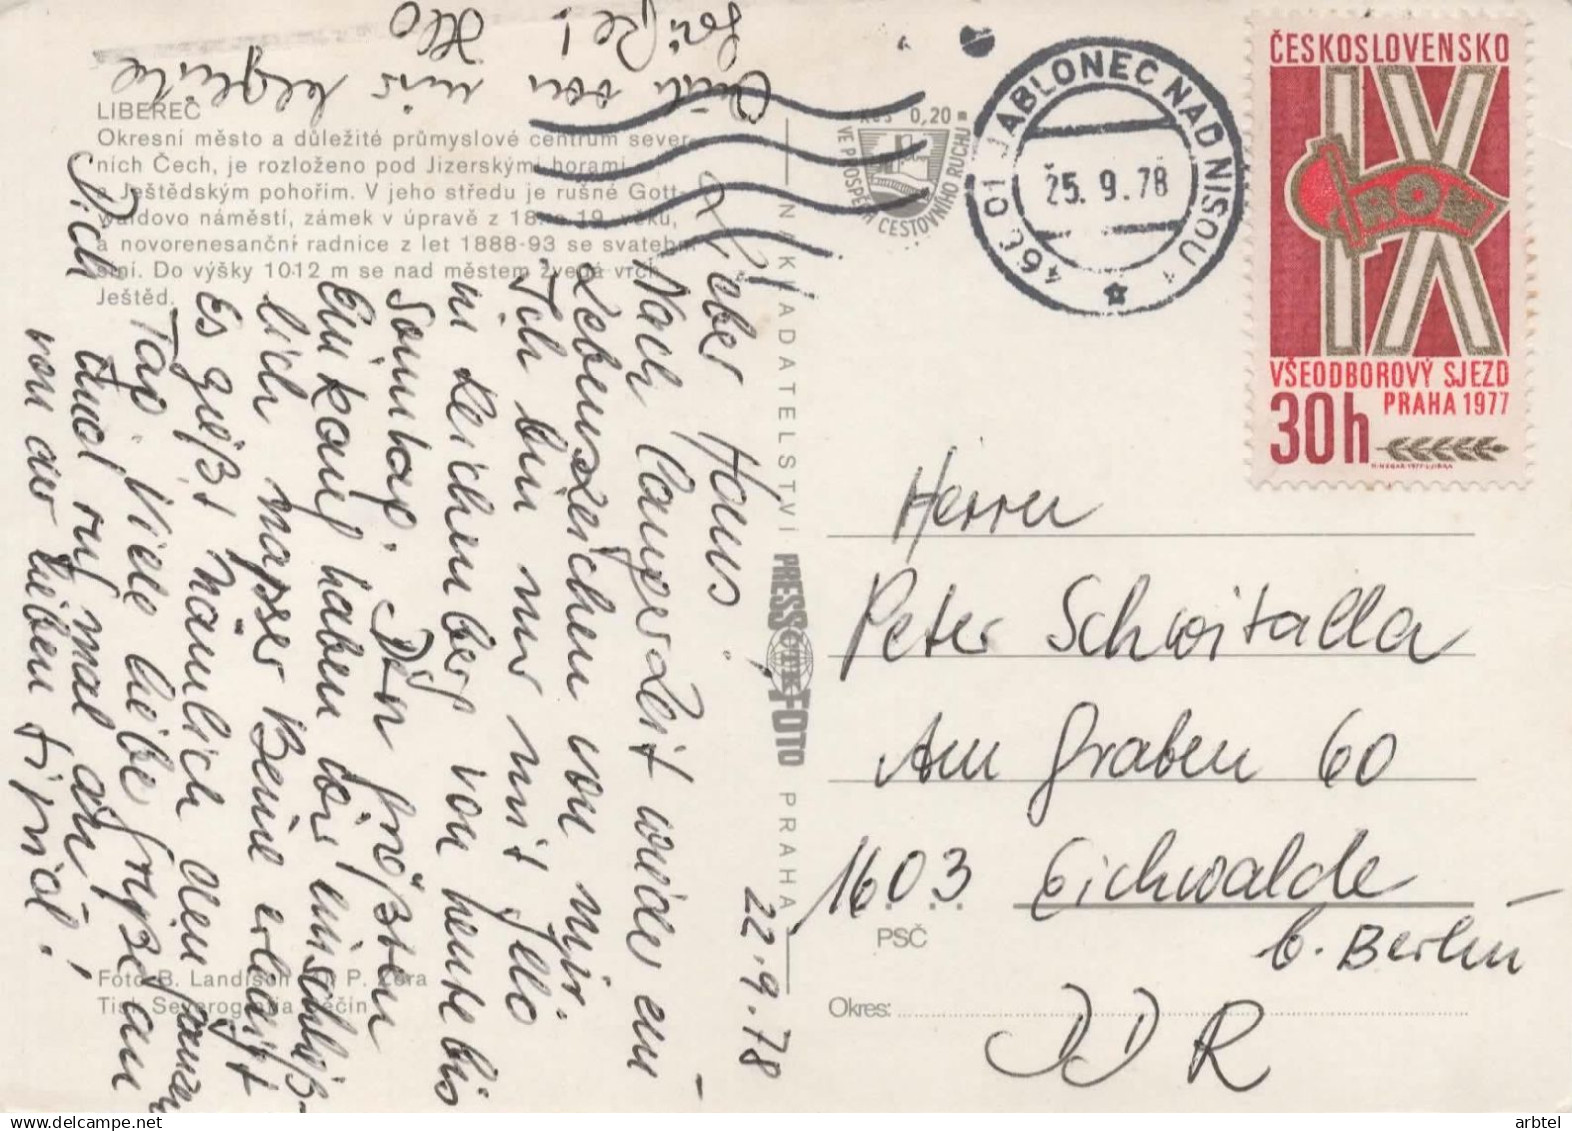 LIBEREC
Okresní město a důležité průmyslové centrum sever-
ních Čech, je rozloženo pod Jizerskými horami
a Ještědským pohořím. V jeho středu je rušné Gott-
waldovo náměstí, zámek v úpravě z 18. a 19. věku,
a novorenesanční radnice z let 1888-93 se svatební
síní. Do výšky 1012 m se nad městem zvedá vrch
Ještěd.
Foto B. Landisch P.
Tisk Severografia Děčín
NAKLADATELSTVÍ PRESSFOTO PRAHA
ČTK
Kčs 0,20
VE PROSPĚCH CESTOVNÍHO RUCHU
466 01 JABLONEC NAD NISOU 1
25. 9. 78
ČESKOSLOVENSKO
IX
ROH
VŠEODBOROVÝ SJEZD
PRAHA 1977
30h
22.9.78
Lieber Hans!
Nach langer Zeit wieder ein
Lebenszeichen von mir.
Ich bin nur mit Ello
in Reichenberg von heute bis
Sonntag. Den größten
Einkauf haben wir einschließ-
lich nasser Beine erledigt
Es gießt nämlich den ganzen
Tag. Viele liebe Grüße an
Dich
Ruf mal an
von der lieben Firma!
Grüße!
Herrn
Peter Schwitalla
Am Graben 60
1603 Eichwalde
b. Berlin
PSČ
Okres:
DDR
arbtel